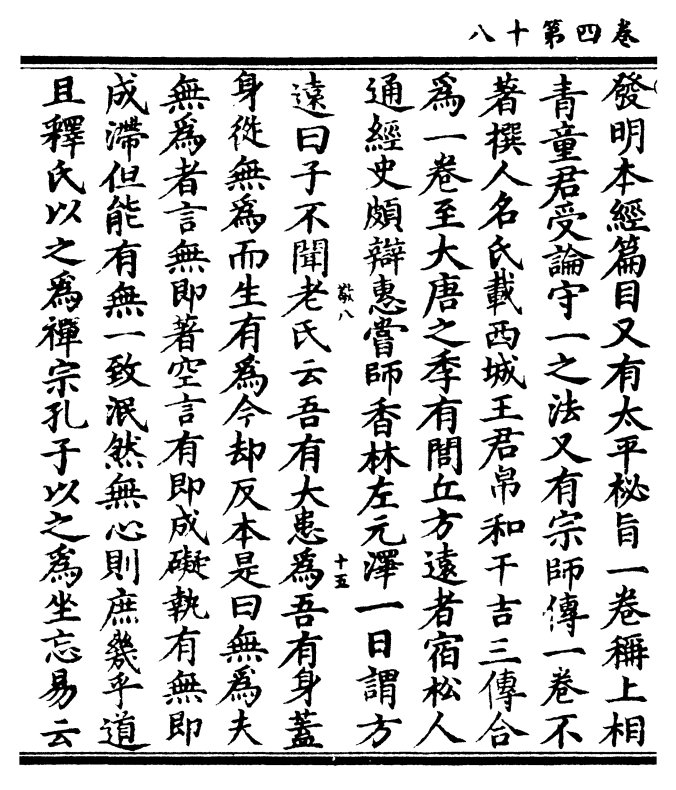 卷四第十八
發明本經篇目又有太平祕旨一卷稱上相
青童君受論守一之法又有宗師傳一卷不
著撰人名氏載西城王君帛和干吉三傳合
爲一卷至大唐之季有閭丘方遠者宿松人
通經史頗辯惠嘗師香林左元澤一日謂方
敬八
十五
遠曰子不聞老氏云吾有大患爲吾有身蓋
身從無爲而生有爲今却反本是曰無爲夫
無爲者言無即著空言有即成礙執有無即
成滯但能有無一致泯然無心則庶幾乎道
且釋氏以之爲禪宗孔子以之爲坐忘易云